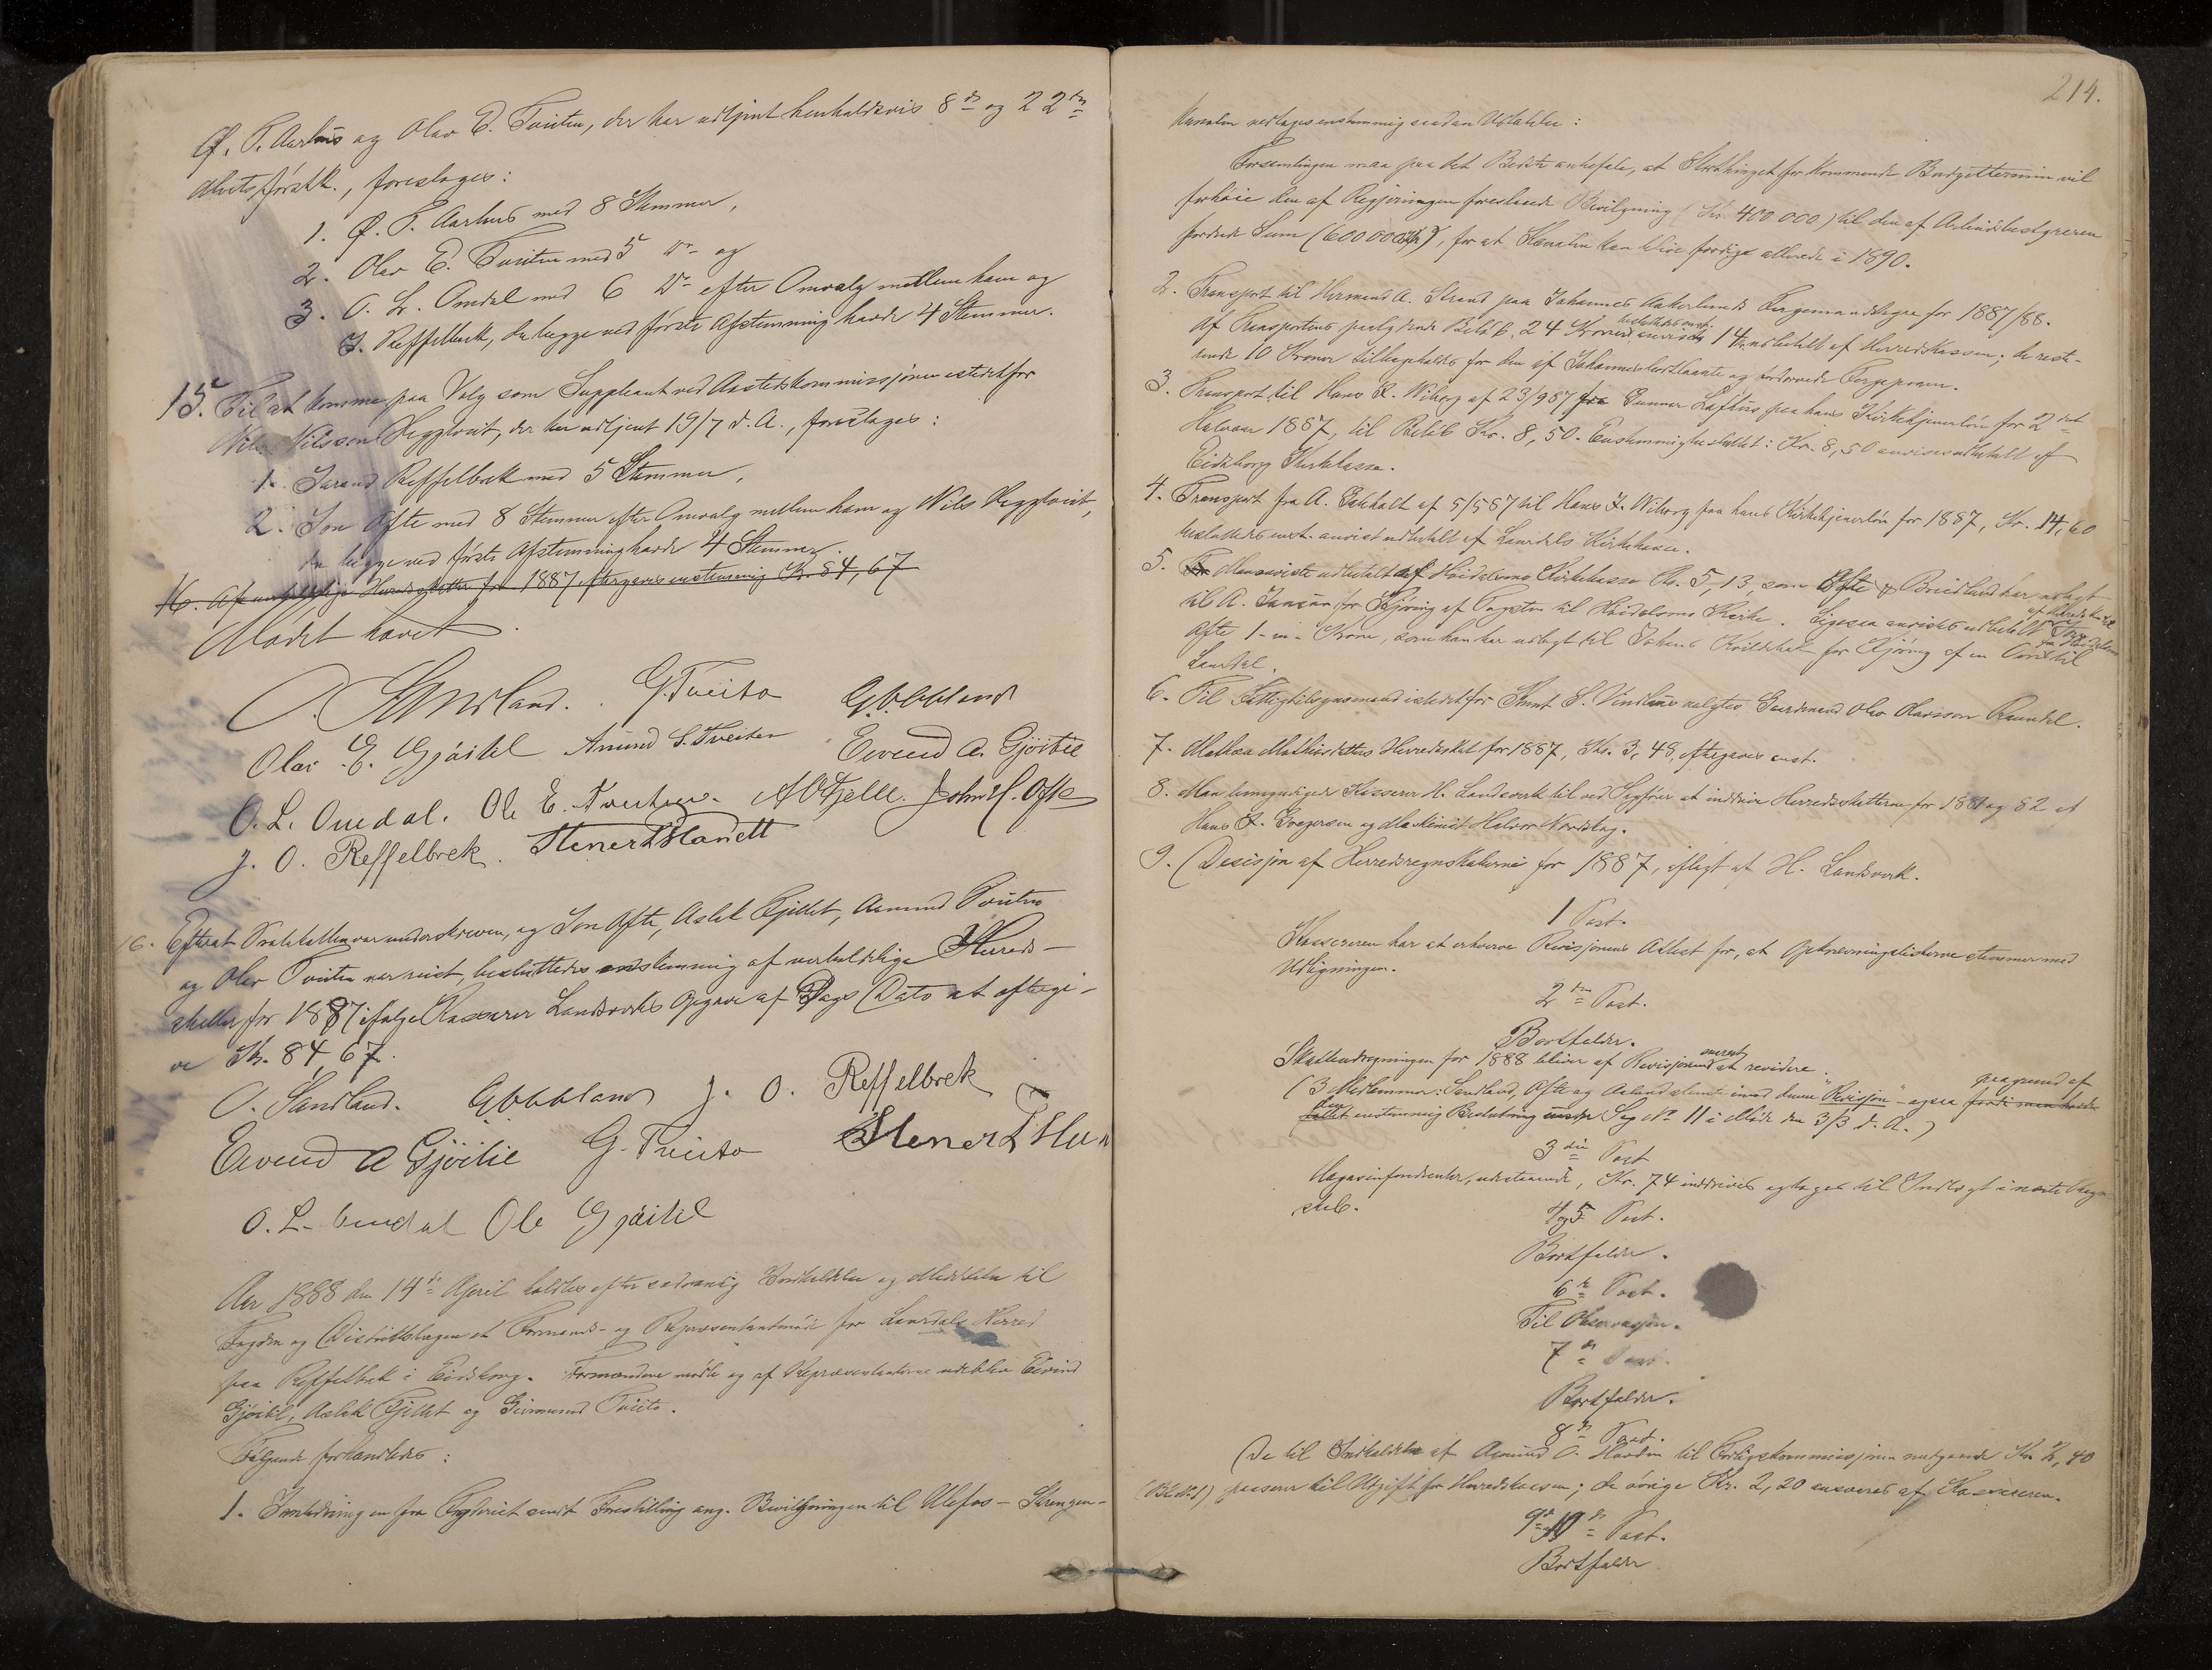 Ø. T. Aarhus og Olav E. Tveiten, der har udtjent henholdsvis 8de og 22de
Marts førstk., foreslages:
1. Ø. T. Aarhus med 8 Stemmer,
2. Olav E. Tveiten med 5 Do og
3. O. L. Omdal med 6 Do efter Omvalg mellem ham og
J. Reffelbæk, da begge ved første Afstemning havde 4 Stemmer.
15. Til at komme paa Valg som Suppleant ved Aastedskommissjonen istedetfor
Nils Nilssen Heggtveit, der har udtjent 19/7 d. A., foreslages:
1. Jørand Reffelbæk med 5 Stemmer,
2. Jon Ofte med 8 Stemmer efter Omvalg mellem ham og Nils Heggtveit,
da begge ved første Afstemning havde 4 Stemmer.
16. Af uerholdelige Herredsskatter for 1887 eftergaves enstemmig Kr. 84,67
Mødet hævet.
O. Sandland. G. Tveito
Olav E. Gjøitil Amund S. Tveiten Eivind A. Gjøitil
O. L. Omdal. Ole E. Tveiten. A O Fjelle. John H. Ofte
J. O. Reffelbæk.
16. Efterat Protokollen var underskreven, og Jon Ofte, Aslak Fjellet, Aamund Tveiten
og Olav Tveiten var reist, besluttedes enstemmig af uerholdelige Herreds-
skatter for 1887 ifølge Kasserer Landsverks Opgave af Dags Dato at eftergi-
ve Kr. 84,67.
O. Sandland. J. O. Reffelbæk
Eivind A Gjøitil G. Tveito
O. L. Omdal Ole Gjøitil
Aar 1888 den 14de April holdtes efter sedvanlig Indkaldelse og Meddelelse til
Fogden og Distriktslægen et Formands- og Repræsentantmøde for Laurdals Herred
paa Reffelbæk i Eidsborg. Formændene mødte og af Repræsentanterne udeblev Eivind
Gjøitil, Aslak Fjellet og Geirmund Tveito.
Følgende forhandledes:
1. I Anledning en fra Fogderiet sendt Forestilling ang. Bevilgningen til Ulefos - Strengen-
214.
Kanalen vedtoges enstemmig saadan Udtalelse:
Forsamlingen maa paa det Bedste anbefale, at Storthinget for kommende Budgettermin vil
forhøie den af Regjeringen foreslaaede Bevilgning (Kr. 400 000) til den af Arbeidsbestyreren
fordrede Sum (600 000 Kr), for at Kanalen kan blive færdige allerede i 1890.
2. Transport til Hermand A. Strand paa Johannes Aakerlunds Færgemandsløn for 1887/88.
besluttedes enst.
af Transportens paalydende Beløb, 24 Kroner, anvist 14 Kr. udbetalt af Herredskassen; de rest-
ende 10 Kroner tilbageholdes for den af Johannes bortlaante og fordærvede Færgepram.
3. Transport til Hans K. Wiborg af 23/9 87 fra Gunnar Lofthus paa hans Kirketjenerløn for 2det
Halvaar 1887, til Beløb Kr. 8,50. Enstemmig besluttet: Kr. 8,50 anvises udbetalt af
Eidsborg Kirkekasse.
4. Transport fra A. Eekholt af 5/5 87 til Hans K. Wiborg paa hans Kirketjenerløn for 1887, Kr. 14,60
besluttedes enst. anvist udbetalt af Laurdals Kirkekasse.
5. Man anviste udbetalt af Høidalsmo Kirkekasse Kr. 5,13, som Ofte & Breiland har udlagt
til A. Jansen for Kjøring af Tagsten til Høidalsmo Kirke. Ligesaa anvistes udbetalt af Herredskassen
Ofte 1 - en - Krone, som han har udlagt til Johans Kvildshat for Kjøring af en Ovn fra Høidalsmo til
Laurdal.
6. Til Fattigtilsynsmand istedetfor Knut S. Vindlaus valgtes Gaardmand Olav Olavsson Raundal.
7. Mathea Mathisdatters Herredsskat for 1887, Kr. 3,48, eftergaves enst.
8. Man bemyndiger Kasserer H. Landsverk til ved Sagfører at inddrive Herredsskatterne for 1881 og 82 af
Hans K. Gregersen og Maskinist Halvor Nordskog.
9. Desisjon af Herredsregnskaberne for 1887, aflagt af H. Landsverk.
1 Post.
Kassereren har at erhverve Revisjonens Attest for, at Opkrævningslisterne stemmer med
Udligningen.
2den Post.
Bortfalder.
Skatteudregningen for 1888 bliver af Revisjonen snarest at revidere.
(3 Medlemmer: Sandland, Ofte og Aaland stemte imod denne "Revisjon" - ogsaa paagrund af
enstemmig Beslutning under Sag No 11 i Møde den 3/3 d. A.)
3die Post
Magasinfondrenter, udestaaende, Kr. 74 inddrives og tages til Indtægt i næste Regn-
skab.
4 og 5 Post.
Bortfalder.
6te Post.
Til Observasjon.
7de Post.
Bortfalder.
8de Post.
De til Indkaldelse af Aamund O. Hovden til Forligskommissjonen medgaaede Kr. 2,40
passerer til Udgift for Herredskassen; de øvrige Kr. 2,20 ansvares af Kassereren.
9de og 10de Post.
Bortfalder